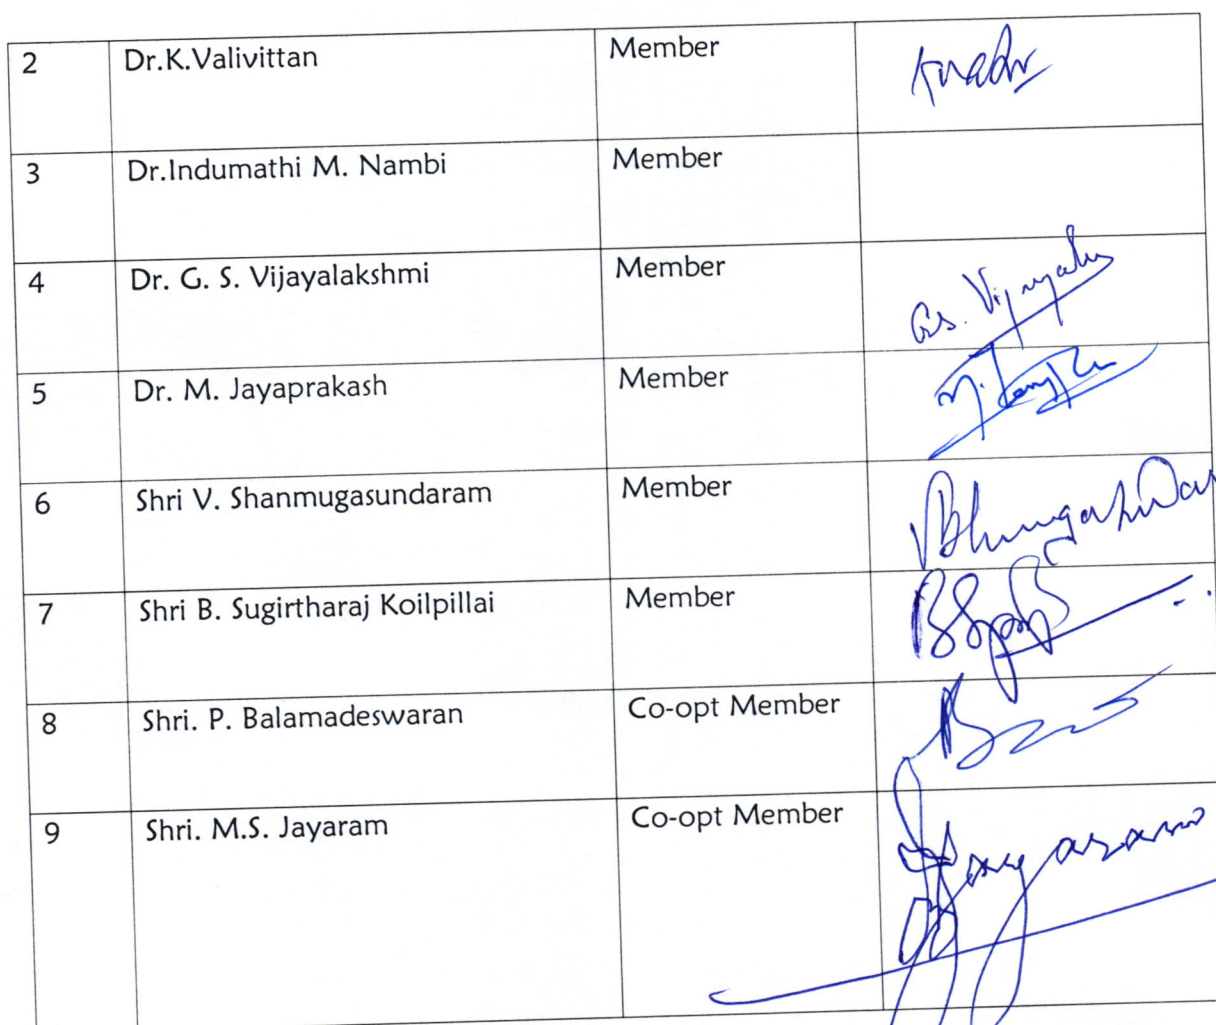 2 Dr.K.Valivittan Member
3 Dr.Indumathi M. Nambi Member
4 Dr. G. S. Vijayalakshmi Member Gs. Vijayalu
5 Dr. M. Jayaprakash Member
6 Shri V. Shanmugasundaram Member
7 Shri B. Sugirtharaj Koilpillai Member
8 Shri. P. Balamadeswaran Co-opt Member
9 Shri. M.S. Jayaram Co-opt Member